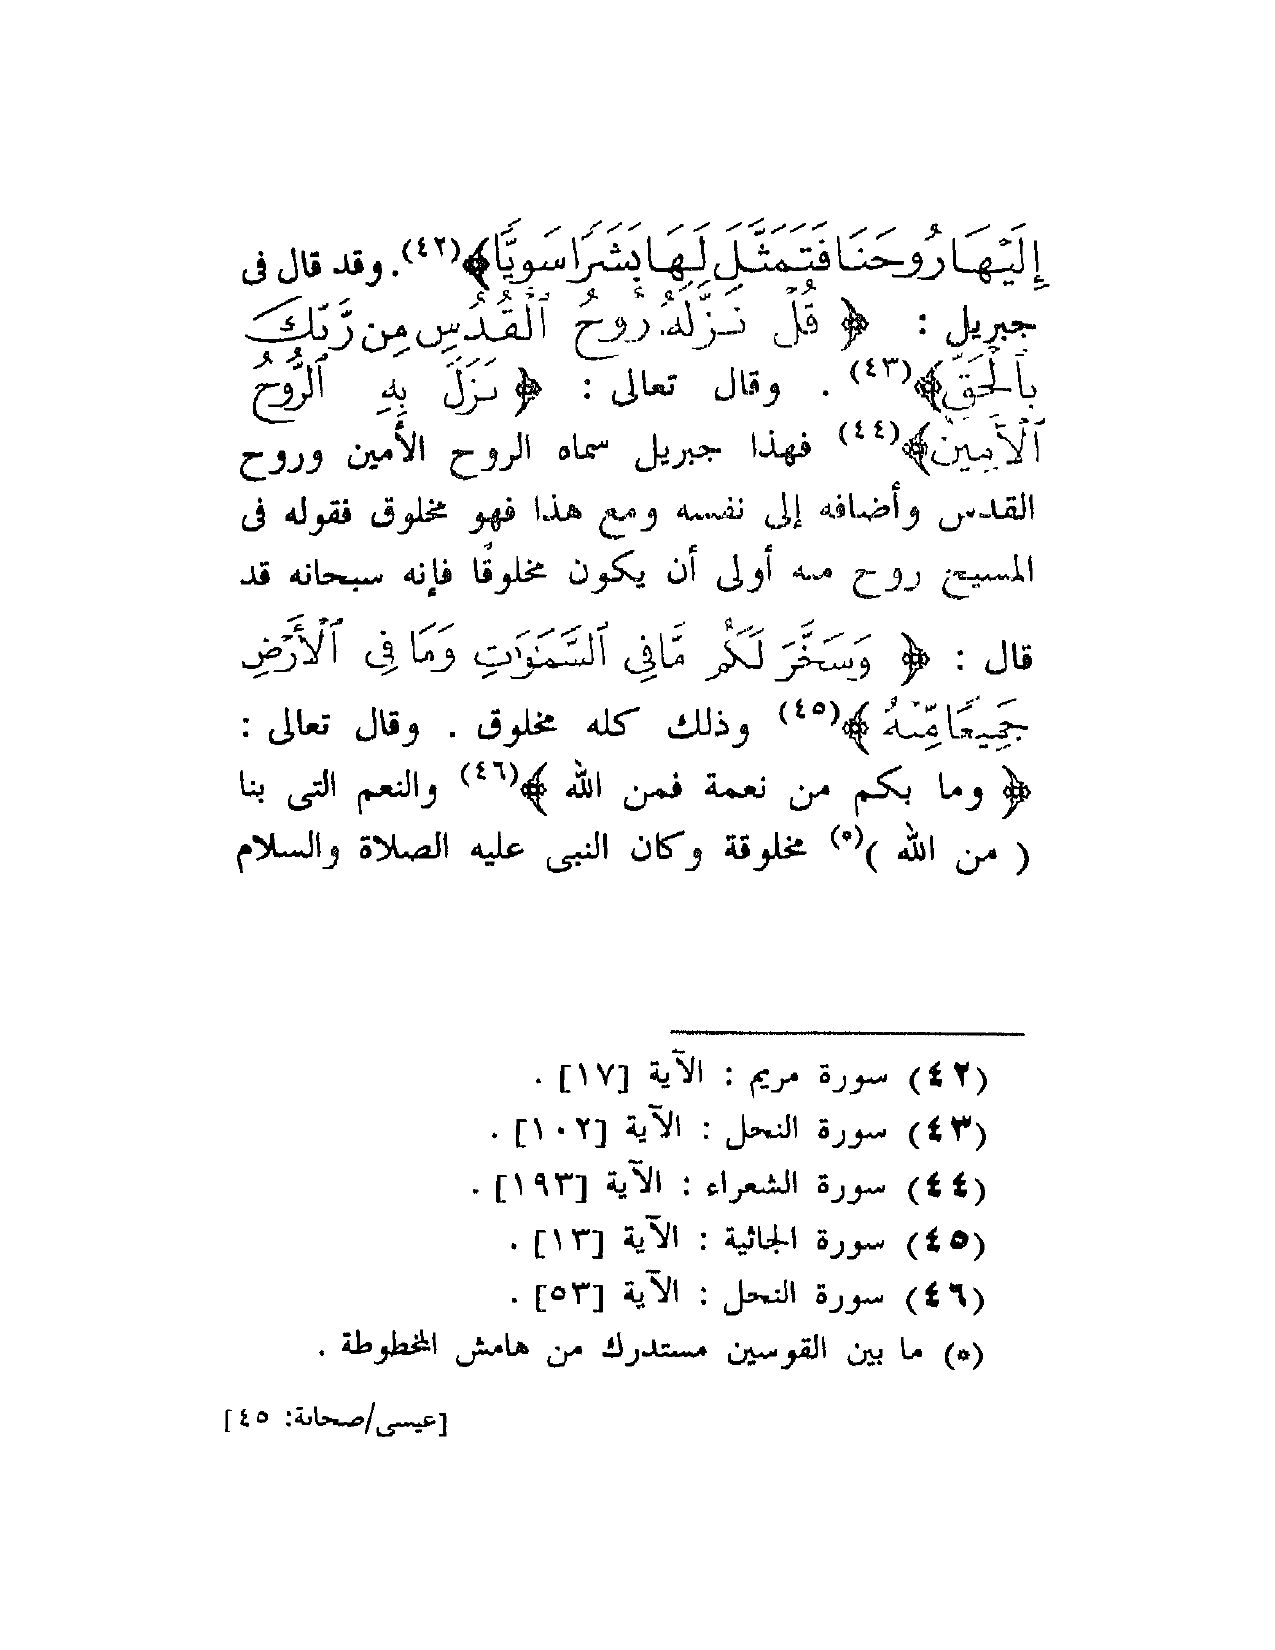 إِلَيْهَا رُوحَنَا فَتَمَثَّلَ لَهَا بَشَرًا سَوِيًّا﴾(٤٢). وقد قال فى
جبريل : ﴿ قُلْ نَزَّلَهُ رُوحُ ٱلْقُدُسِ مِن رَّبِّكَ
بِٱلْحَقِّ﴾(٤٣) . وقال تعالى : ﴿ نَزَلَ بِهِ ٱلرُّوحُ
ٱلْأَمِينُ﴾(٤٤) فهذا جبريل سماه الروح الأمين وروح
القدس وأضافه إلى نفسه ومع هذا فهو مخلوق فقوله فى
المسيح روح منه أولى أن يكون مخلوقًا فإنه سبحانه قد
قال : ﴿ وَسَخَّرَ لَكُم مَّا فِي ٱلسَّمَٰوَٰتِ وَمَا فِي ٱلْأَرْضِ
جَمِيعًا مِّنْهُ ﴾(٤٥) وذلك كله مخلوق . وقال تعالى :
﴿ وما بكم من نعمة فمن الله ﴾(٤٦) والنعم التى بنا
( من الله )(٥) مخلوقة وكان النبى عليه الصلاة والسلام
(٤٢) سورة مريم : الآية [١٧] .
(٤٣) سورة النحل : الآية [١٠٢] .
(٤٤) سورة الشعراء : الآية [١٩٣] .
(٤٥) سورة الجاثية : الآية [١٣] .
(٤٦) سورة النحل : الآية [٥٣] .
(٥) ما بين القوسين مستدرك من هامش المخطوطة .
[عيسى/صحابة: ٤٥]